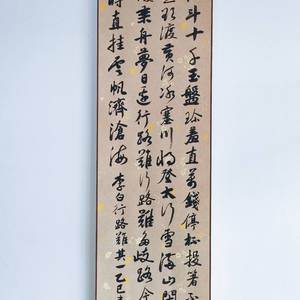 斗十千玉盤珍羞直萬錢停杯投箸不
欲渡黃河冰塞川將登太行雪滿山閒
復乘舟夢日邊行路難行路難多歧路今
時直挂雲帆濟滄海 李白行路難其一乙巳